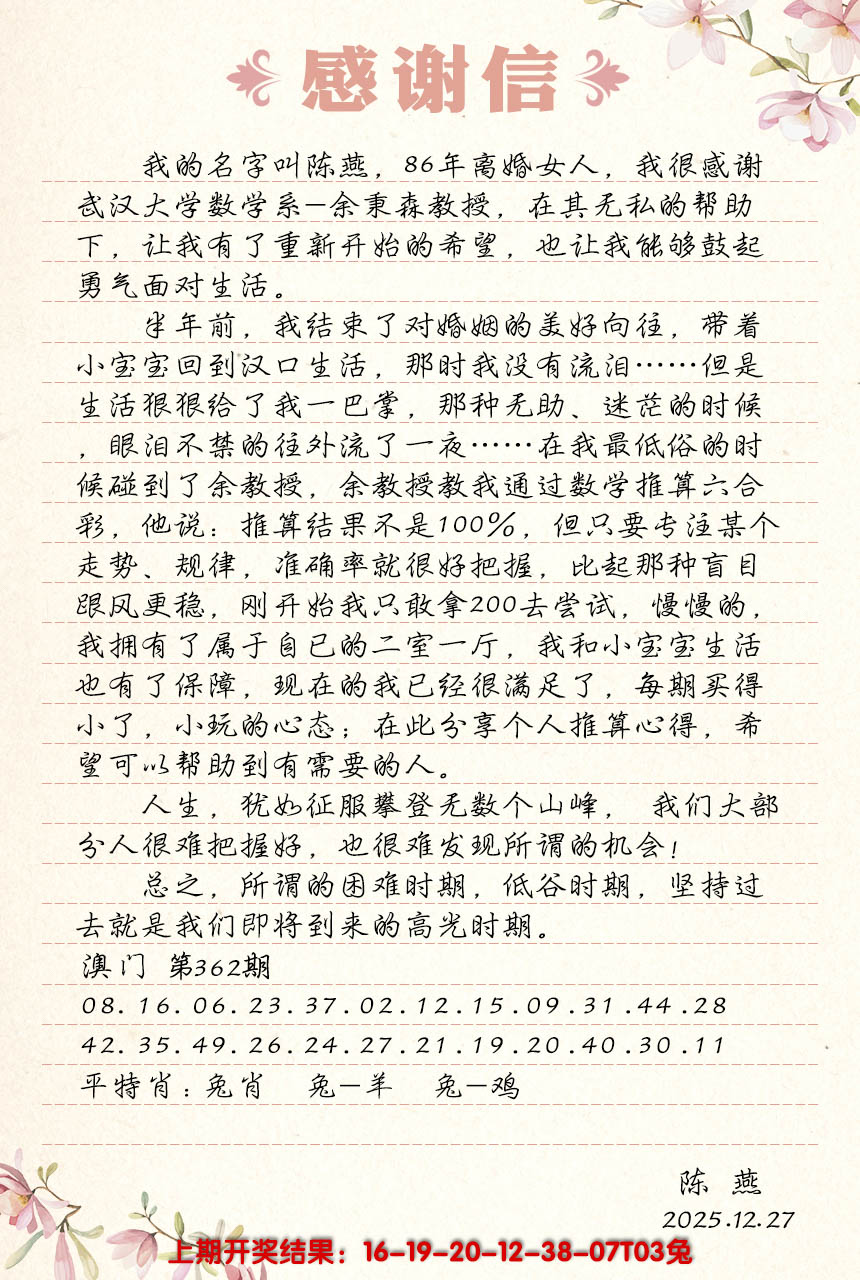 感谢信
我的名字叫陈燕，86年离婚女人，我很感谢
武汉大学数学系—余秉森教授，在其无私的帮助
下，让我有了重新开始的希望，也让我能够鼓起
勇气面对生活。
半年前，我结束了对婚姻的美好向往，带着
小宝宝回到汉口生活，那时我没有流泪……但是
生活狠狠给了我一巴掌，那种无助、迷茫的时候
，眼泪不禁的往外流了一夜……在我最低俗的时
候碰到了余教授，余教授教我通过数学推算六合
彩，他说：推算结果不是100%，但只要专注某个
走势、规律，准确率就很好把握，比起那种盲目
跟风更稳，刚开始我只敢拿200去尝试，慢慢的，
我拥有了属于自已的二室一厅，我和小宝宝生活
也有了保障，现在的我已经很满足了，每期买得
小了，小玩的心态；在此分享个人推算心得，希
望可以帮助到有需要的人。
人生，犹如征服攀登无数个山峰， 我们大部
分人很难把握好，也很难发现所谓的机会！
总之，所谓的困难时期，低谷时期，坚持过
去就是我们即将到来的高光时期。
澳门 第362期
08.16.06.23.37.02.12.15.09.31.44.28
42.35.49.26.24.27.21.19.20.40.30.11
平特肖：兔肖 兔—羊 兔—鸡
陈 燕
2025.12.27
上期开奖结果：16-19-20-12-38-07T03兔